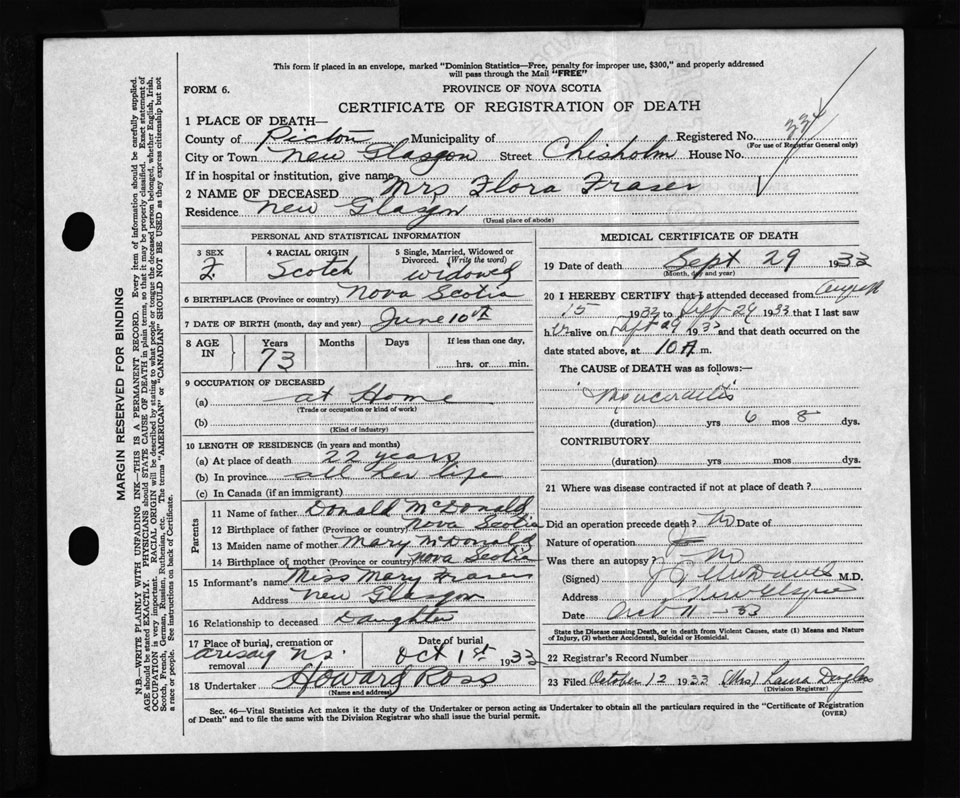 This form if placed in an envelope, marked "Dominion Statistics—Free, penalty for improper use, $300," and properly addressed
will pass through the Mail "FREE"
FORM 6.
PROVINCE OF NOVA SCOTIA
CERTIFICATE OF REGISTRATION OF DEATH
1 PLACE OF DEATH—
County of Pictou Municipality of Registered No. 334
(For use of Registrar General only)
City or Town New Glasgow Street Chisholm House No.
If in hospital or institution, give name
2 NAME OF DECEASED Mrs Flora Fraser
Residence New Glasgow
(Usual place of abode)
PERSONAL AND STATISTICAL INFORMATION
3 SEX F.
4 RACIAL ORIGIN Scotch
5 Single, Married, Widowed or Divorced. (Write the word) widowed
6 BIRTHPLACE (Province or country) Nova Scotia
7 DATE OF BIRTH (month, day and year) June 10th
8 AGE IN Years 73 Months Days If less than one day, hrs. or min.
9 OCCUPATION OF DECEASED
(a) at Home
(Trade or occupation or kind of work)
(b)
(Kind of industry)
10 LENGTH OF RESIDENCE (in years and months)
(a) At place of death 22 years
(b) In province all her life
(c) In Canada (if an immigrant)
Parents
11 Name of father Donald McDonald
12 Birthplace of father (Province or country) Nova Scotia
13 Maiden name of mother Mary McDonald
14 Birthplace of mother (Province or country) Nova Scotia
15 Informant's name Miss Mary Fraser
Address New Glasgow
16 Relationship to deceased Daughter
17 Place of burial, cremation or removal Arisaig N.S. Date of burial Oct 1st 1933
18 Undertaker Howard Ross
(Name and address)
MEDICAL CERTIFICATE OF DEATH
19 Date of death Sept 29 1933
(Month, day and year)
20 I HEREBY CERTIFY that I attended deceased from August
15 1933 to Sept 29 1933 that I last saw
her alive on Sept 29 1933 and that death occurred on the
date stated above, at 10 A m.
The CAUSE of DEATH was as follows:—
(duration) yrs 6 mos 8 dys.
CONTRIBUTORY
(duration) yrs mos dys.
21 Where was disease contracted if not at place of death?
Did an operation precede death? No Date of
Nature of operation
Was there an autopsy? No
(Signed) M.D.
Address New Glasgow
Date Oct 11 - 33
State the Disease causing Death, or in death from Violent Causes, state (1) Means and Nature
of Injury, (2) whether Accidental, Suicidal or Homicidal.
22 Registrar's Record Number
23 Filed October 12 1933 (Mrs) Laura Douglas
(Division Registrar)
Sec. 46—Vital Statistics Act makes it the duty of the Undertaker or person acting as Undertaker to obtain all the particulars required in the "Certificate of Registration
of Death" and to file the same with the Division Registrar who shall issue the burial permit.
(OVER)
MARGIN RESERVED FOR BINDING
N.B.—WRITE PLAINLY WITH UNFADING INK—THIS IS A PERMANENT RECORD. Every item of information should be carefully supplied.
AGE should be stated EXACTLY. PHYSICIANS should STATE CAUSE OF DEATH in plain terms, so that it may be properly classified. Exact statement of
OCCUPATION is very important. RACIAL ORIGIN will be described by stating to what people or tongue the deceased person belonged, whether English, Irish,
Scotch, French, German, Russian, Ruthenian, etc. The terms "AMERICAN" or "CANADIAN" SHOULD NOT BE USED as they express citizenship but not
a race or people. See instructions on back of Certificate.